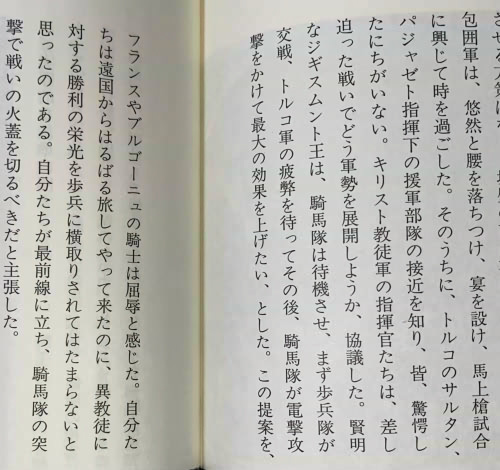 包囲軍は、悠然と腰を落ちつけ、宴を設け、馬上槍試合
に興じて時を過ごした。そのうちに、トルコのサルタン、
パジャゼト指揮下の援軍部隊の接近を知り、皆、驚愕し
たにちがいない。キリスト教徒軍の指揮官たちは、差し
迫った戦いでどう軍勢を展開しようか、協議した。賢明
なジギスムント王は、騎馬隊は待機させ、まず歩兵隊が
交戦、トルコ軍の疲弊を待ってその後、騎馬隊が電撃攻
撃をかけて最大の効果を上げたい、とした。この提案を、
フランスやブルゴーニュの騎士は屈辱と感じた。自分た
ちは遠国からはるばる旅してやって来たのに、異教徒に
対する勝利の栄光を歩兵に横取りされてはたまらないと
思ったのである。自分たちが最前線に立ち、騎馬隊の突
撃で戦いの火蓋を切るべきだと主張した。